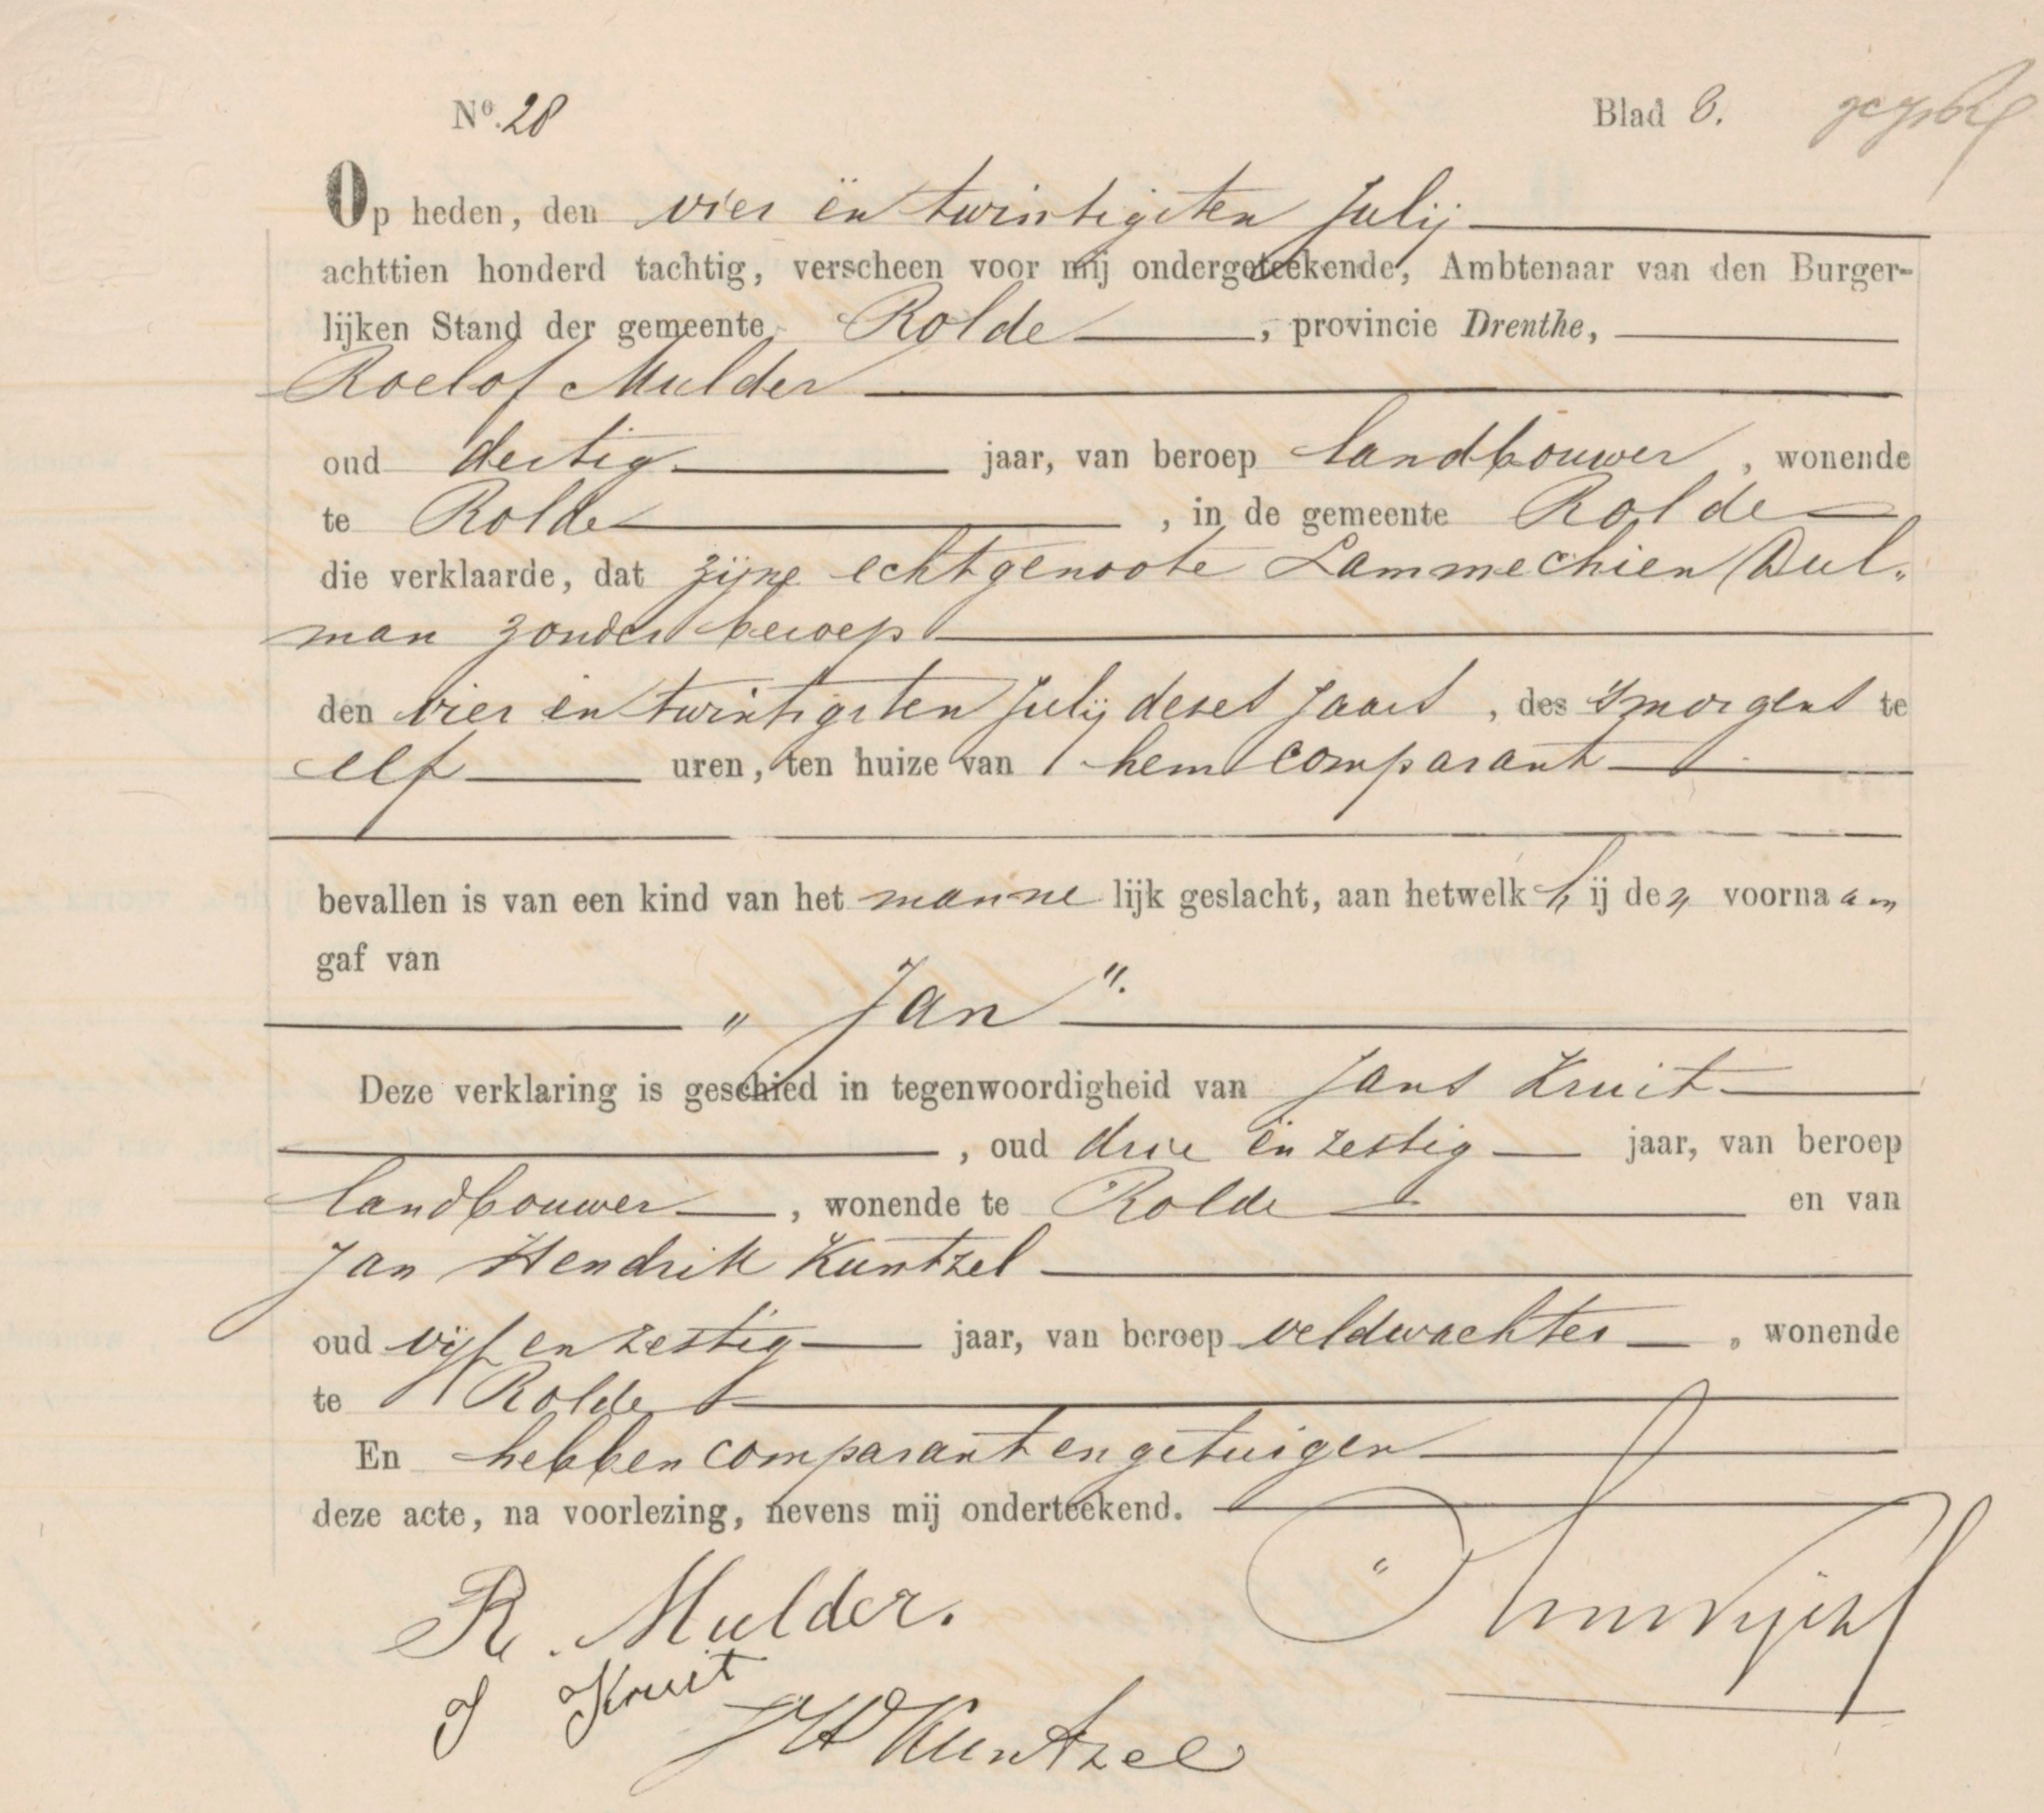 No. 28 Blad 8.
Op heden, den vier en twintigsten Julij
achttien honderd tachtig, verscheen voor mij ondergeteekende, Ambtenaar van den Burger-
lijken Stand der gemeente Rolde, provincie Drenthe,
Roelof Mulder
oud dertig jaar, van beroep landbouwer, wonende
te Rolde, in de gemeente Rolde
die verklaarde, dat zijne echtgenoote Lammechien Dul„
man zonder beroep
den vier en twintigsten Julij deses jaars, des 'smorgens te
elf uren, ten huize van hem comparant
bevallen is van een kind van het mannelijk geslacht, aan hetwelk hij den voornaam
gaf van
„Jan".
Deze verklaring is geschied in tegenwoordigheid van Jans Kruit
, oud drie en zestig jaar, van beroep
landbouwer, wonende te Rolde en van
Jan Hendrik Kuntzel
oud vijf en zestig jaar, van beroep veldwachter, wonende
te Rolde
En hebben comparant en getuigen
deze acte, na voorlezing, nevens mij onderteekend.
R. Mulder.
J Kruit
JH Kuntzel